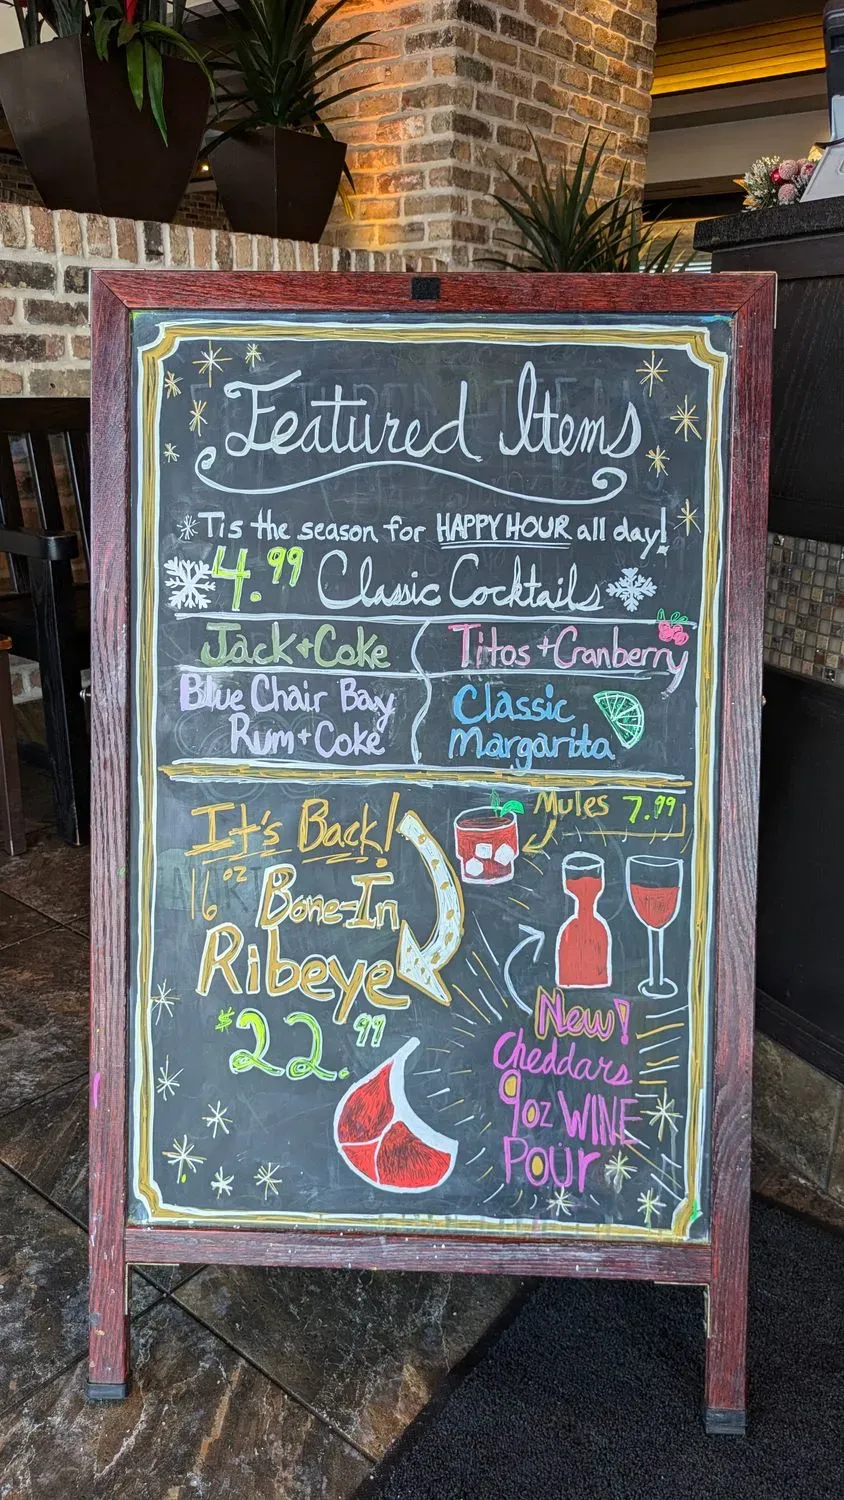 Featured Items
Tis the season for HAPPY HOUR all day!
4.99 Classic Cocktails
Jack + Coke
Titos + Cranberry
Blue Chair Bay
Rum + Coke
Classic
Margarita
It's Back!
16oz Bone-In
Ribeye
$22.99
Mules 7.99
New!
Cheddars
9oz WINE
POUr